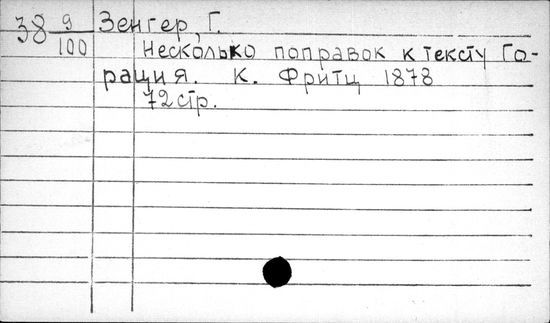 38 9/100 Зенгер, Г.
Несколько поправок к тексту Го-
рация. К. Фритц 1878
72 стр.